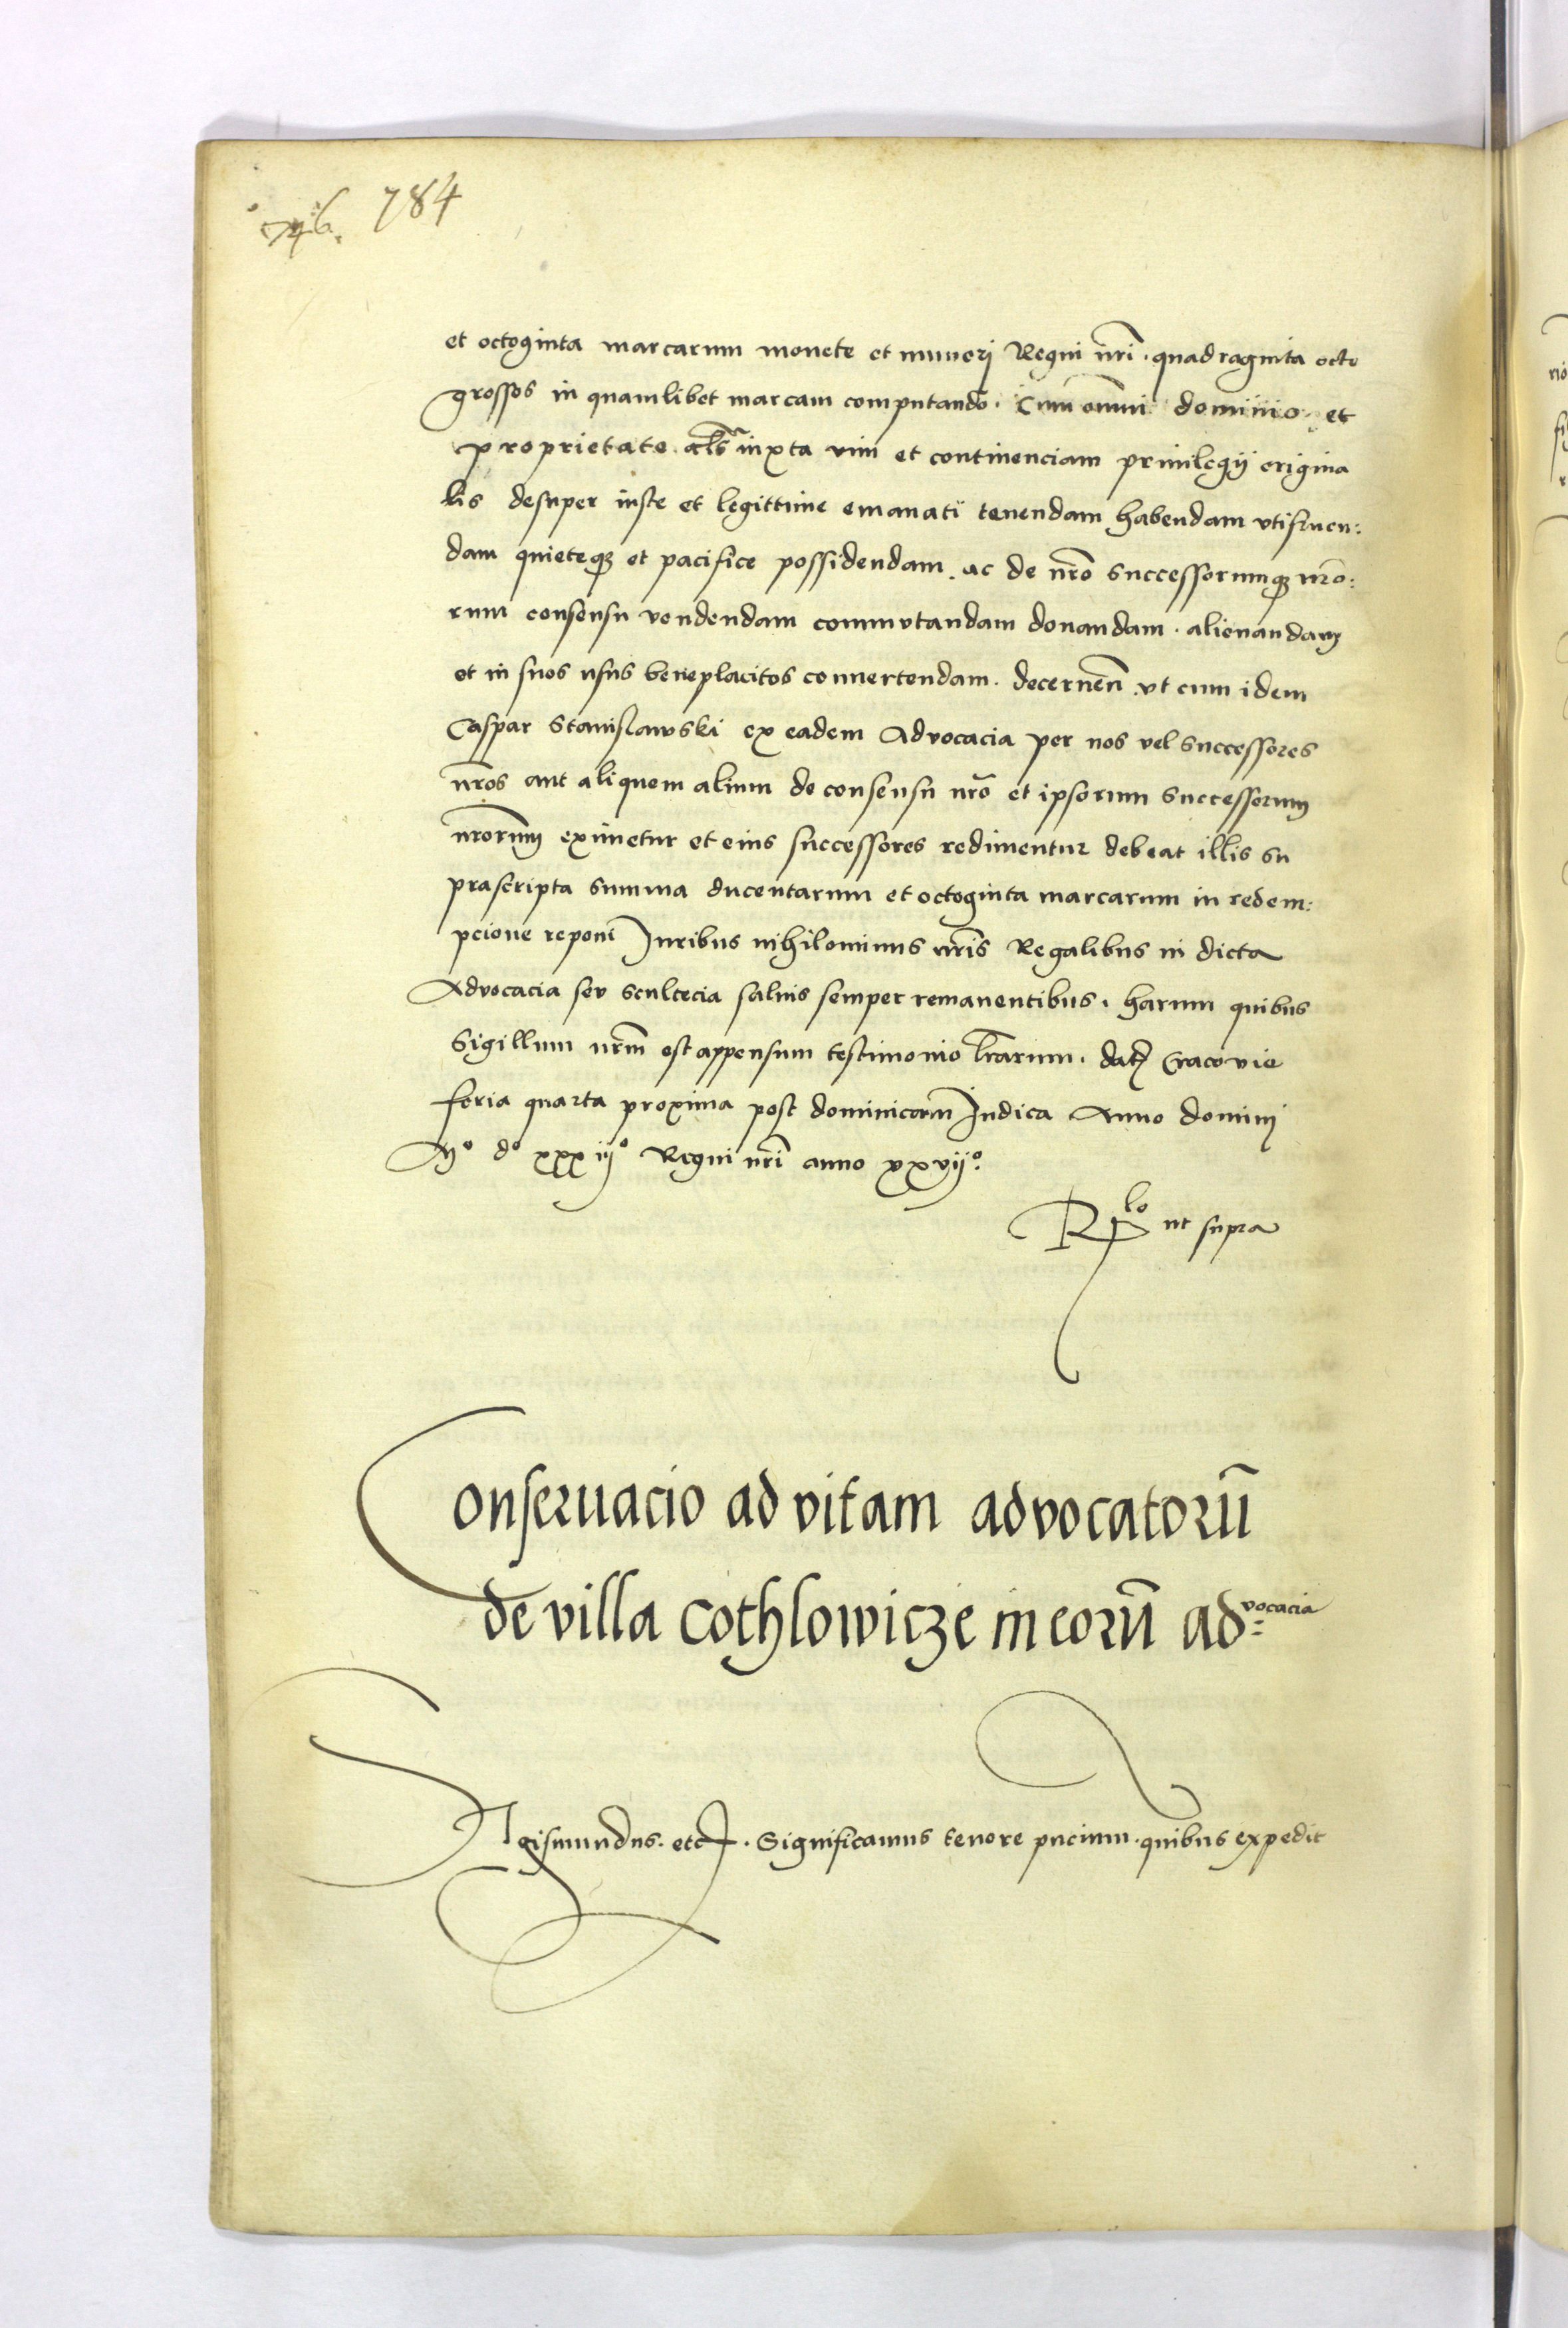 784
et octoginta marcarum monete et numerj Regni nrĩ. quadraginta octo
grossos in quamlibet marcam computando. Cum omni dominio et
proprietate als iuxta vim et continenciam priuilegij origina
lis desuper iuste et legittime emanati tenendam habendam vtifruen:
dam quieteqꝫ et pacifice possidendam. ac de nrõ successorumqꝫ nrõ:
rum consensu vendendam commutandam donandam. alienandam
et in suos usus beneplacitos conuertendam. decernen̄ vt cum idem
Caspar Stanislawski ex eadem Advocacia per nos vel successores
nr̃os aut aliquem alium de consensu nrõ et ipsorum successorum
nrorum̃ eximetur et eius successores redimentur debeat illis su
prascripta summa ducentarum et octoginta marcarum in redem:
pcione reponi Juribus nihilominus nrĩs Regalibus in dicta
Advocacia seu scultecia saluis semper remanentibus. harum quibus
Sigillum nrm̃ est appensum testimonio lr̃arum. datꝫ Cracovie
feria quarta proxima post dominicam Judica Anno dominj
Mº dº xxxiijº Regni nrĩ anno xxvijº.
Rlo ut supra
Conseruacio ad vitam advocatorū
de villa Cothlowicze in eorū ad:vocacia
Sigismundus. etc. Significamus tenore pn̄cium. quibus expedit